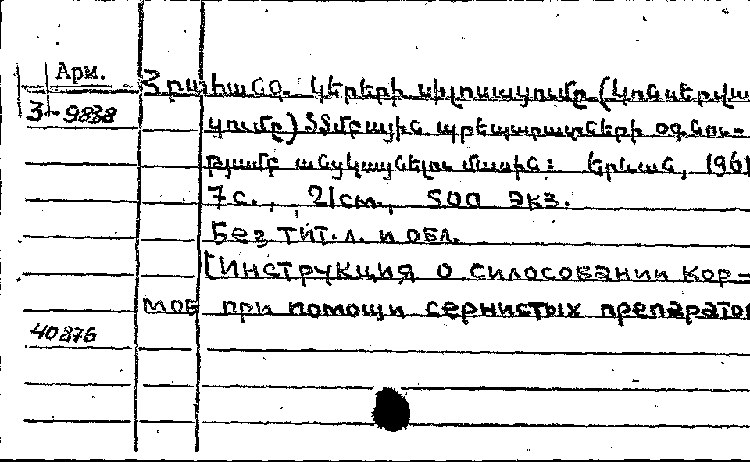 Арм.
3-9838
Հրահանգ. կերերի սիլոսացումը (կոնսերվա
ցումը) ծծմբային պրեպարատների օգնու-
թյամբ անցկացնելու մասին: Երևան, 1961
7с., 21см., 500 экз.
Без тит.л. и обл.
[Инструкция о силосовании кор-
мов при помощи сернистых препарато
40876